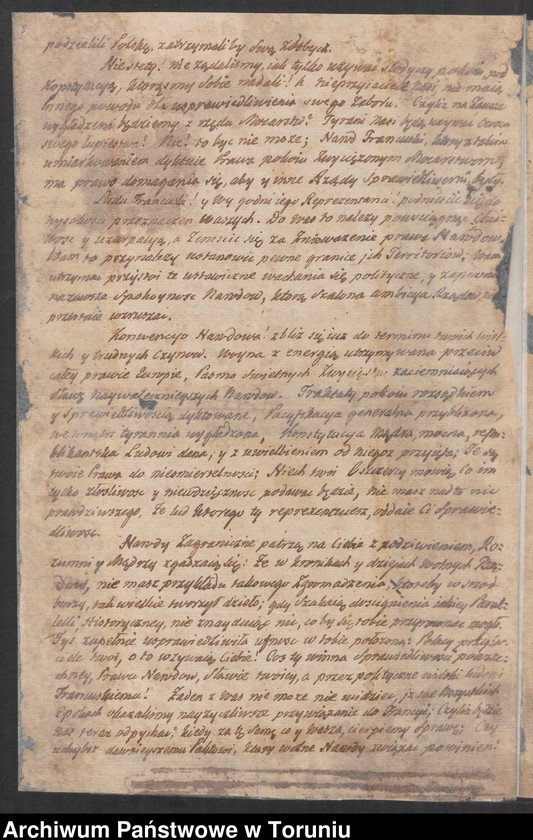 podzielili Polskę, zatrzymaliby swą zdobycz.
Niestety! nie żądaliśmy, iak tylko używać słodyczy pokoiu, pod
Konstytucyą, którąśmy sobie nadali! a nieprzyiaciele nasi, nie maią
innego powodu dla usprawiedliwienia swego Zaboru. Czyliż na zawsze
wygładzeni będziemy z rzędu Mocarstw? Tyrani nasi będą używać Owocu
swego łupiestwa? Nie! to być nie może; Naród Francuski, który z takim
umiarkowaniem dyktuie Prawa pokoiu zwyciężonym Mocarstwom,
ma prawo domagania się, aby y inne Rządy Sprawiedliwemi były.
Ludu Francuski! y Wy godni iego Reprezentanci! podnieście się do
wysokości przeznaczeń Waszych. Do Was to należy powściągnąć
y uzurpacyą, a zemścić się za znieważenie prawa Narodów.
Wam to przynależy ustanowić pewne granice ich Territoriów; Wam
utrzymać przystoi te ustawiczne wachania się polityczne, y zapewnić
nazawsze Spokoyność Narodów, którą Szalona ambicya Rządów, nie
przestaie wzruszać.
Konwencyo Narodowa! zbliż się iuż do terminu twoich wiel-
kich y trudnych Czynów. Woyna z energią utrzymywana przeciw
całey prawie Europie, Pasmo świetnych Zwycięstw zaciemniaiących
sławę naywalecznieyszych Narodów. Traktaty pokoiu rozsądkiem
y Sprawiedliwością dyktowane, Pacyfikacya generalna przybliżona,
wewnątrz tyrannia wygładzona, Konstytucya Mądra, mocna, repu-
blikantska Ludowi dana, y z uwielbieniem od niego przyięta; Te są
twoie Prawa do nieśmiertelności; Niech twoi Oszczercy mówią, co im
tylko złośliwość y niewdzięczność podawać będzie, nie masz nadto nic
prawdziwszego, że lud którego ty reprezentuiesz, oddaie Ci Sprawie-
dliwość.
Narody Zagraniczne patrzą na Ciebie z podziwieniem, Ro-
zumni y Mądrzy zgadzaią się: że w kronikach y dzieiach wolnych Na-
rodów, nie masz przykładu takowego Zgromadzenia, któreby w śród
burzy, tak wielkie tworzył dzieło; gdy szukaią doścignienia iakiey Paral-
lelli Historyczney, nie znayduią nic, co by się tobie przyrównać mogło.
Tyś zupełnie usprawiedliwiła ufność w tobie położoną: Polacy przyia-
ciele twoi, o to wzywaią Ciebie! Coś ty winna Sprawiedliwości powsze-
chney, Prawu Narodów, Sławie twoiey, a przez polityczne widoki ludowi
Francuskiemu! Żaden z Was nie może nie widzieć, iż we Wszystkich
Epokach okazaliśmy nayżyczliwsze przywiązanie do Francyi; Czyliż będzie
nas teraz odpychać? kiedy za tę samą co y Wasza, cierpiemy Sprawę; Czy
uchybić dawnieyszemu Paktowi, który wolne Narody związać powinien!
Archiwum Państwowe w Toruniu